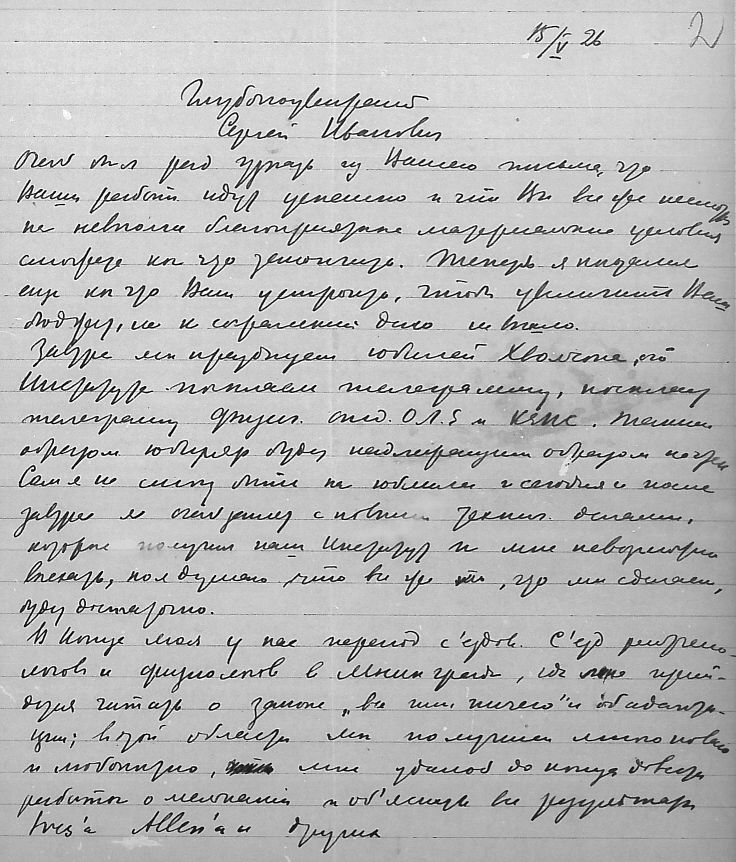 15/V 26
2
Глубокоуважаемый
Сергей Иванович
Очень был рад узнать из Вашего письма, что
Ваши работы идут успешно и что Вы все же несмотря
на невполне благоприятные материальные условия
сможете кое что закончить. Теперь я пытался
еще кое что Вам устроить, чтобы увеличить Ваш
бюджет, но к сожалению дело не вышло.
Завтра мы празднуем юбилей Хвольсона, от
Института посылаем телеграмму, посылаем
телеграмму физич. отд. О.Л.Е и КЕПС. Таким
образом юбиляр будет надлежащим образом
Сам я не смогу быть на юбилее и сегодня и
завтра я очень занят с новыми делами,
которые получил наш Институт и мне невозможно
выехать, но я думаю что все же, что мы сделаем,
будет достаточно.
В конце мая у нас период с'ездов. С'езд рентгено-
логов и физиологов в Ленинграде, где мне прий-
дется читать о законе „все или ничего" и об адапта-
ции; в этой области мы получили много нового
и любопытного, мне удалось до конца довести
работы о мелькании и об'яснить все результаты
Ives'a Allen'a и других